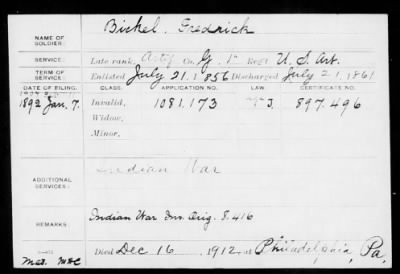 NAME OF SOLDIER: Bickel, Fredrick
SERVICE: Late rank, Artif Co. G, 1" Reg't U.S. Art.
TERM OF SERVICE: Enlisted July 21, 1856 Discharged July 21, 1861
DATE OF FILING. CLASS. APPLICATION NO. LAW. CERTIFICATE NO.
1892 Jan. 7. Invalid, 1081.173 J. 897.496
Widow,
Minor,
ADDITIONAL SERVICES: Indian War
REMARKS: Indian War Inv. Orig. 8,416
Died Dec 16, 1912, at Philadelphia, Pa.